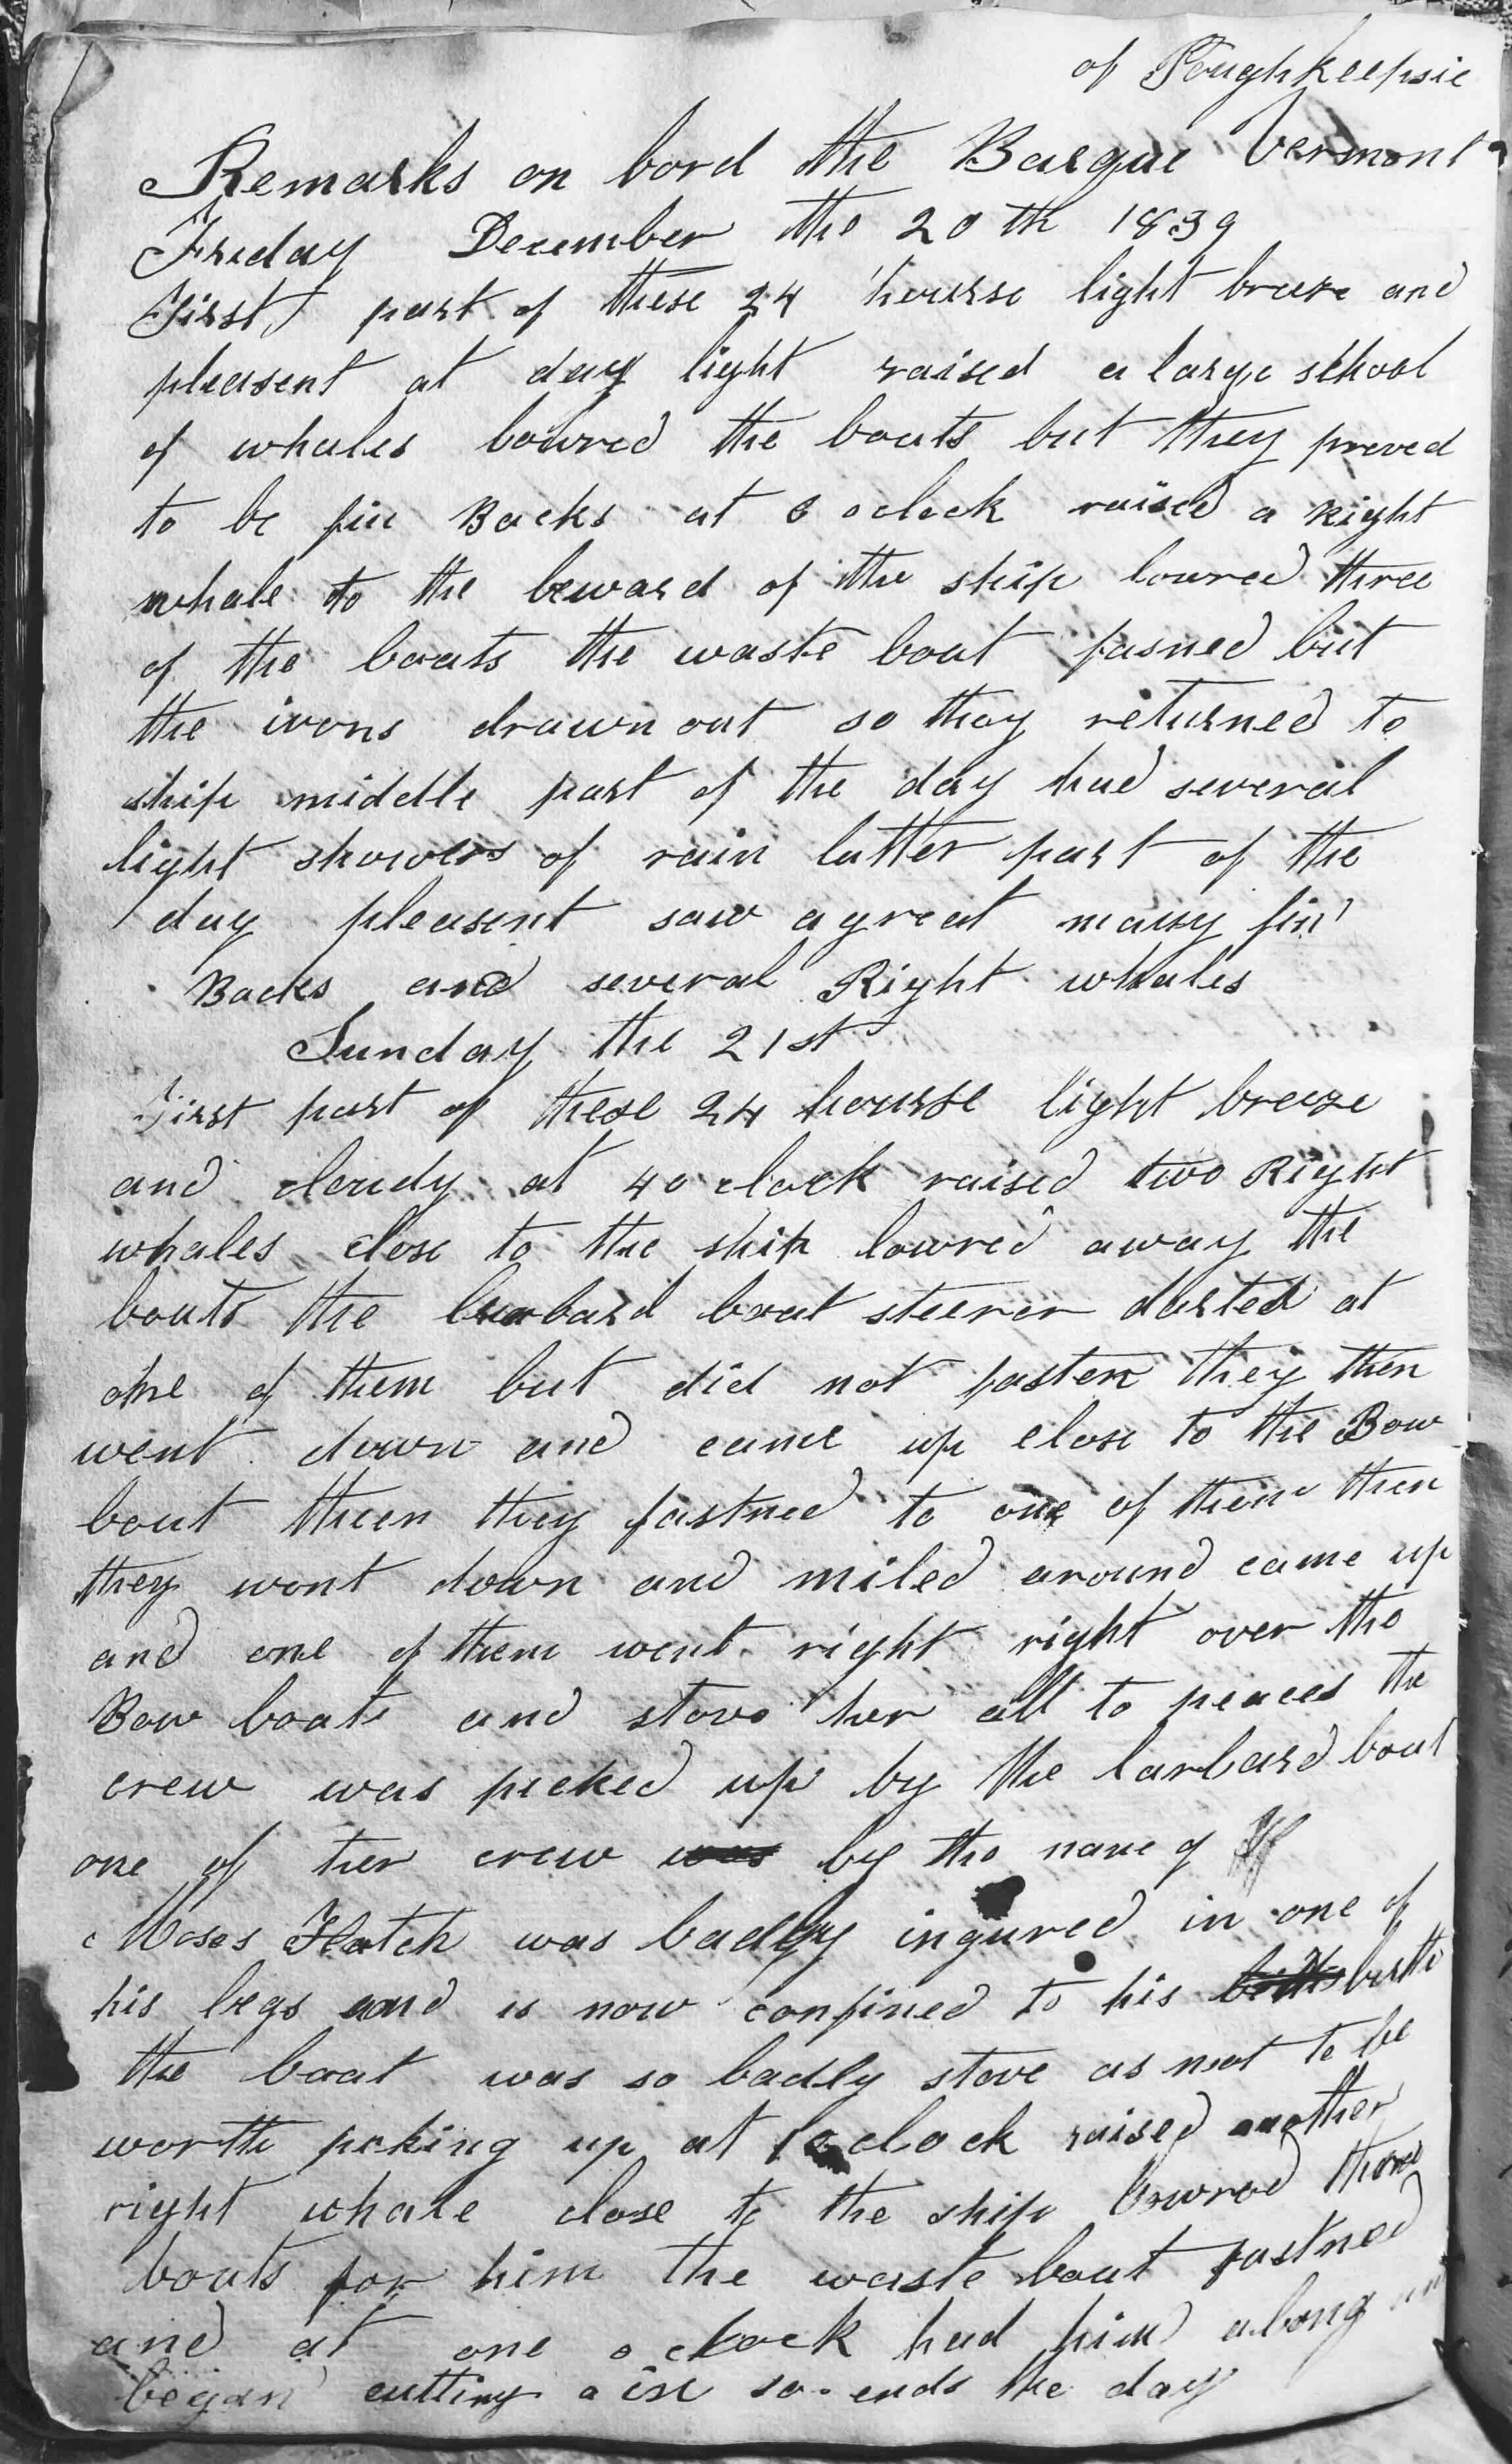 of Poughkeepsie
Remarks on bord the Barque Vermont
Friday December the 20th 1839
First part of these 24 hourse light breeze and
pleasent at day light raised a large school
of whales lowred the boats but they proved
to be fin Backs at 8 oclock raised a Right
whale to the leward of the ship lowred three
of the boats the waste boat fasned but
the irons drawn out so they returned to
ship middle part of the day had several
light showers of rain latter part of the
day pleasent saw a great many fin
Backs and several Right whales
Sunday the 21st
First part of these 24 hourse light breeze
and cloudy at 4 o clock raised two Right
whales close to the ship lowred away the
boats the larbard boat steerer darted at
one of them but did not fasten they then
went down and came up close to the Bow
boat then they fastned to one of them then
they went down and miled around came up
and one of them went right right over the
Bow boat and stove her all to peaces the
crew was picked up by the larbard boat
one of her crew was by the name of
Moses Hatch was badly ingured in one of
his legs and is now confined to his birth
the boat was so badly stove as not to be
worth picking up at oclock raised another
right whale close to the ship lowred three
boats for him the waste boat fastned
and at one o clock had him along
began cutting in so ends the day